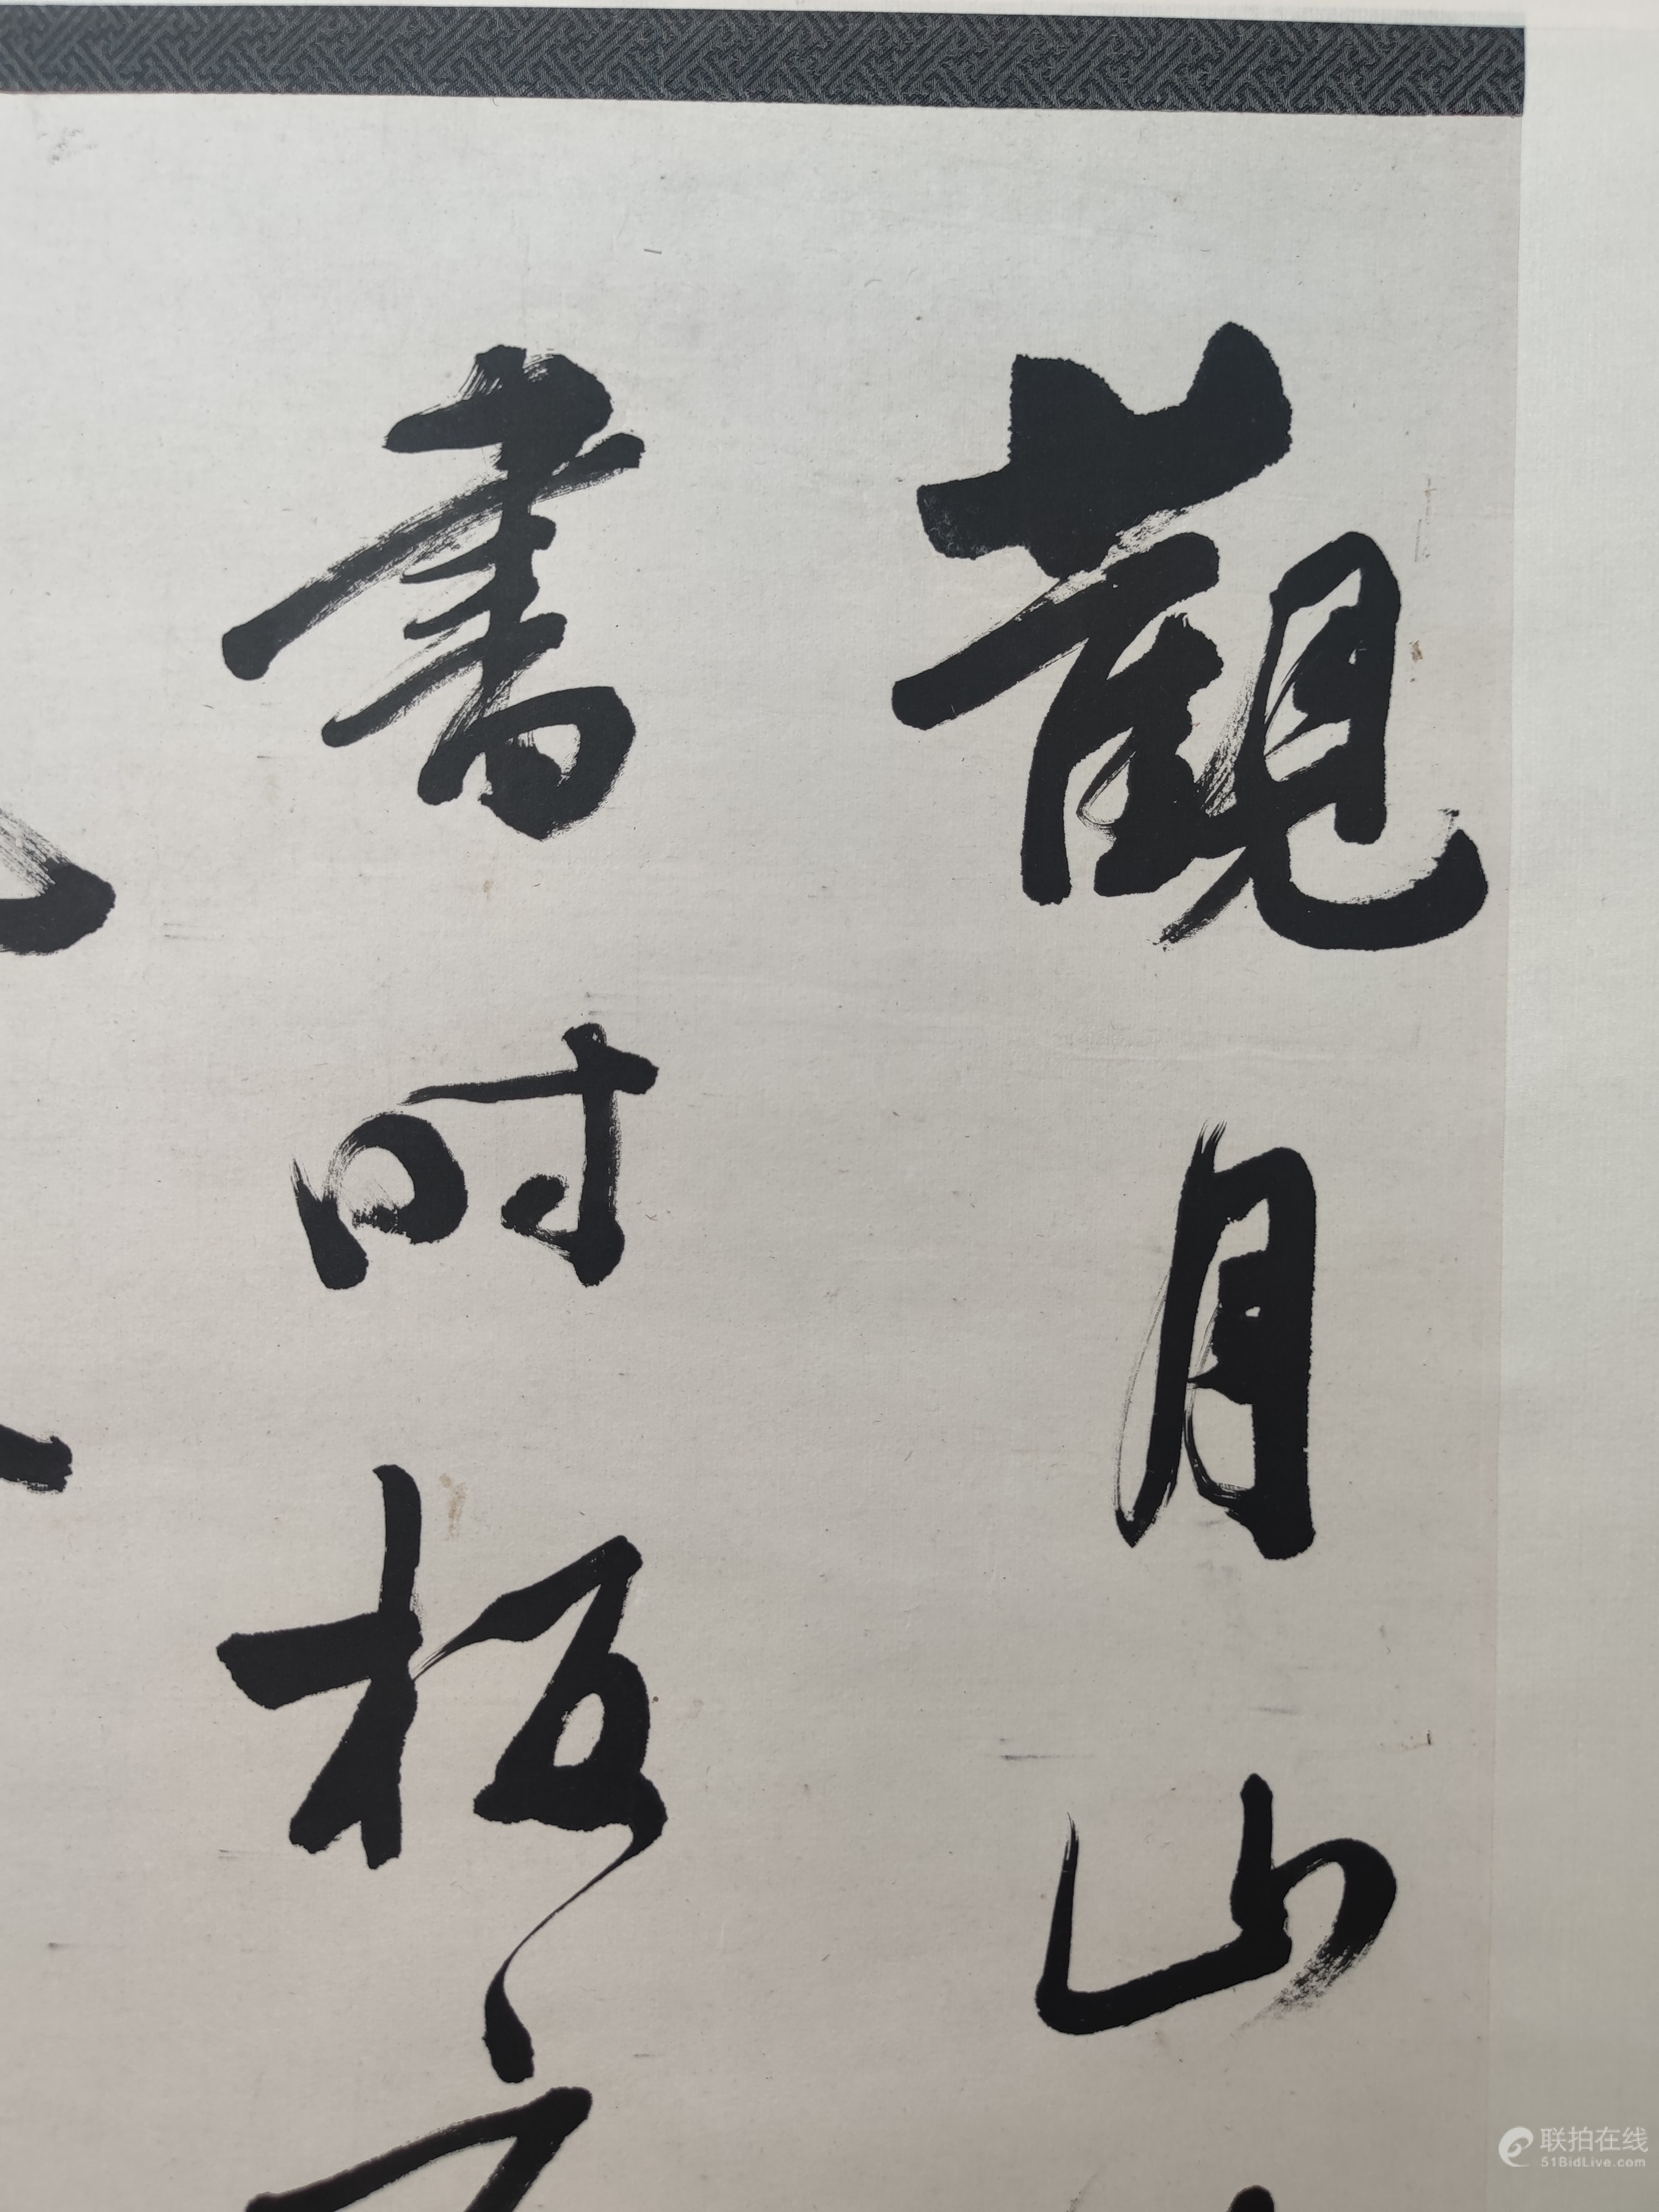 觀月山
書時板
联拍在线
51BidLive.com